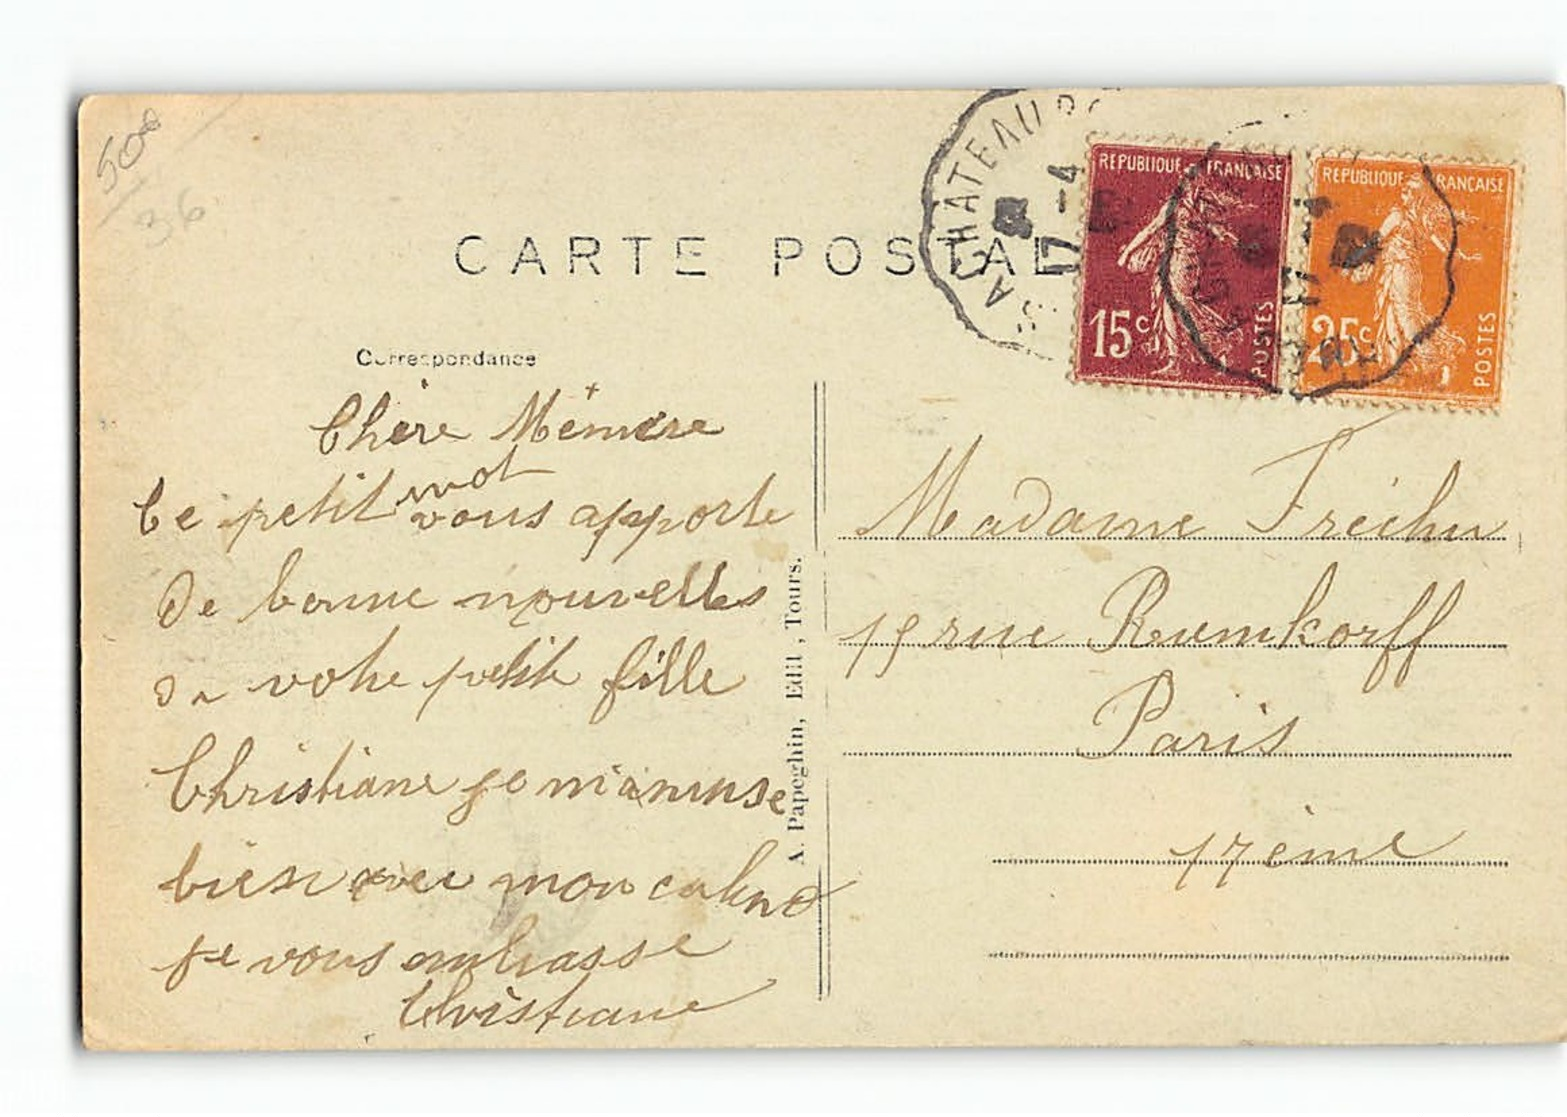 50
36
CARTE POSTALE
Correspondance
Chère Mémère
Ce petit mot vous apporte
de bonne nouvelles
de votre petite fille
Christiane je m'amuse
bien avec mon
je vous embrasse
Christiane
A. Papeghin, Edit., Tours.
CHATEAU
17 -4
REPUBLIQUE FRANÇAISE
15c
POSTES
REPUBLIQUE FRANÇAISE
25c
POSTES
Madame Fréchu
19 rue Rumkorff
Paris
17ème